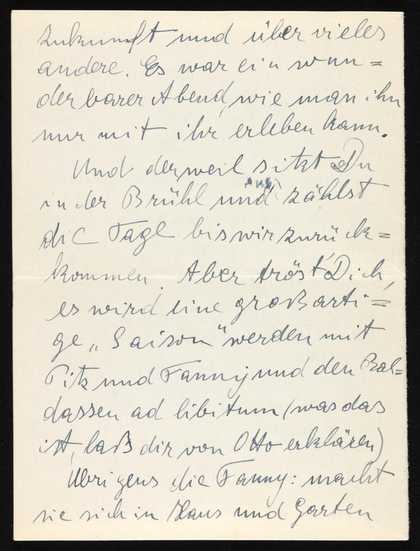 Zukunft und über vieles
andere. Es war ein wun=
derbarer Abend, wie man ihn
nur mit ihr erleben kann.
Und derweil sitzt Du
in der Brühl und zählst
die Tage bis wir zurück=
kommen. Aber tröst' Dich,
es wird eine großarti=
ge „Saison" werden mit
Pitz und Fanny und den Bal=
dassen ad libitum (was das
ist, laß dir von Otto erklären)
Übrigens die Fanny: macht
sie sich in Haus und Garten